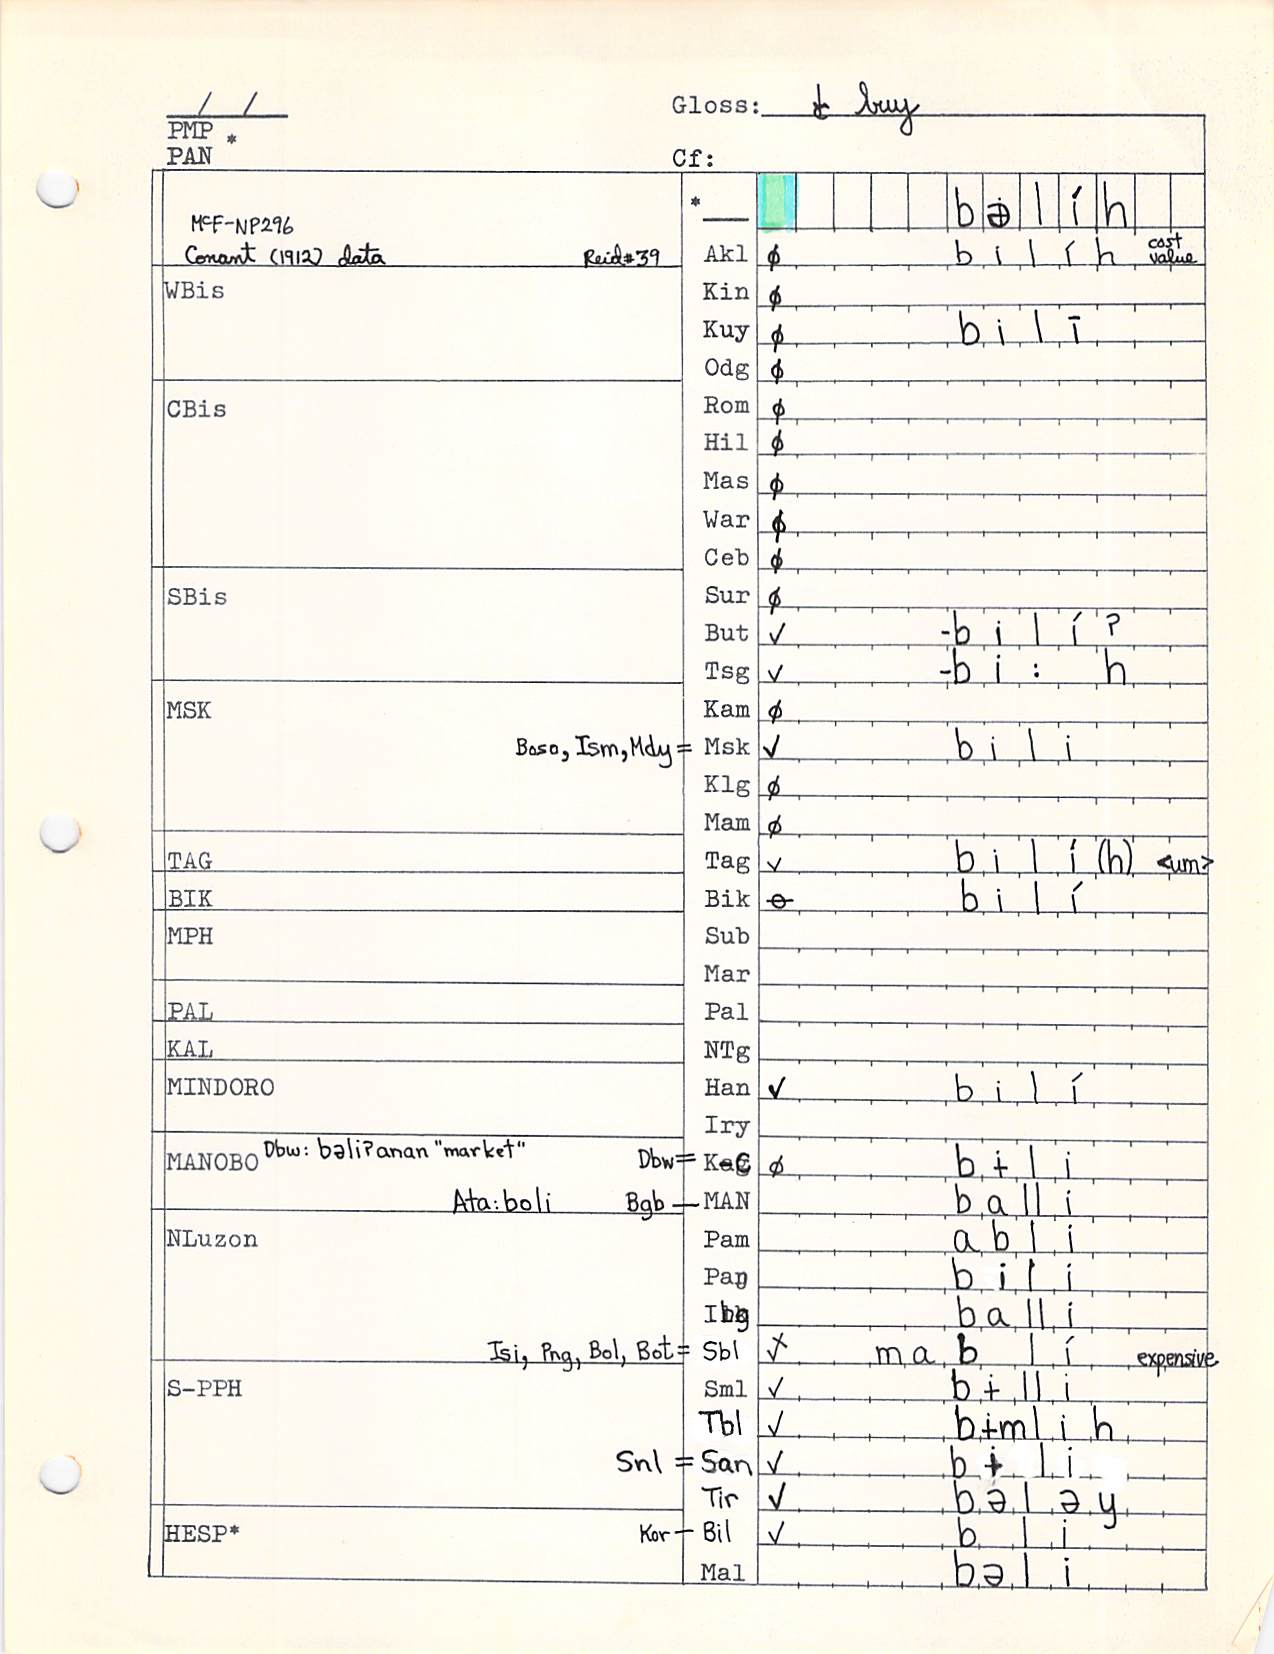 / /
Gloss: to buy
PMP *
PAN
Cf:
McF-NP296
* bəlíh
Conant (1912) data Reid#39
Akl ∅ bilíh cost value
WBis
Kin ∅
Kuy ∅ bilī
Odg ∅
CBis
Rom ∅
Hil ∅
Mas ∅
War ∅
Ceb ∅
SBis
Sur ∅
But ✓ -bilíʔ
Tsg ✓ -bi:h
MSK
Kam ∅
Boso, Ism, Mdy = Msk ✓ bili
Klg ∅
Mam ∅
TAG Tag ✓ bilí(h) <um>
BIK Bik ɵ bilí
MPH Sub
Mar
PAL Pal
KAL NTg
MINDORO Han ✓ bilí
Iry
MANOBO Dbw: bəliʔanan "market" Dbw = KaC ∅ bɨli
Ata: boli Bgb — MAN balli
NLuzon Pam abli
Paŋ bili
Ibg balli
Isi, Png, Bol, Bot = Sbl ✓ mablí expensive
S-PPH Sml ✓ bɨlli
Tbl ✓ bɨmlih
Snl = San ✓ bɨli
Tir ✓ bələy
HESP* Kor — Bil ✓ bli
Mal bəli